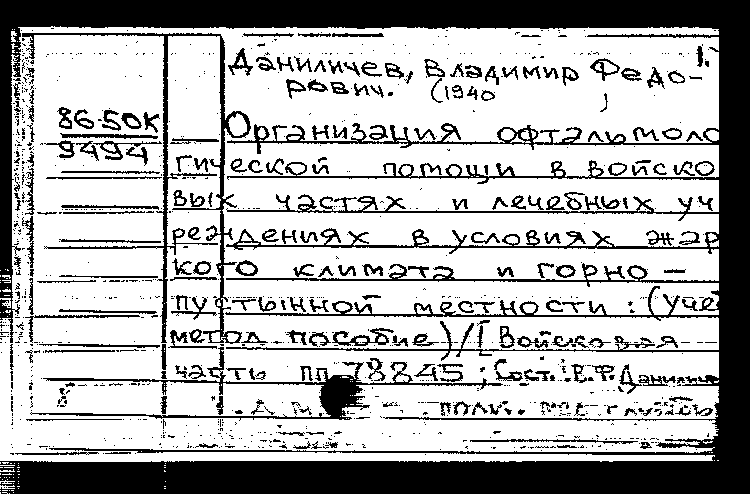 1.
Даниличев, Владимир Федо-
рович. (1940 )
86-50К
9494
Организация офтальмоло
гической помощи в войско
вых частях и лечебных уч
реждениях в условиях жар
кого климата и горно-
пустынной местности : (Учеб
метод пособие) / [Войсковая
часть пп 78845 ; Сост.: В.Ф. Данилич
полк. мед службы